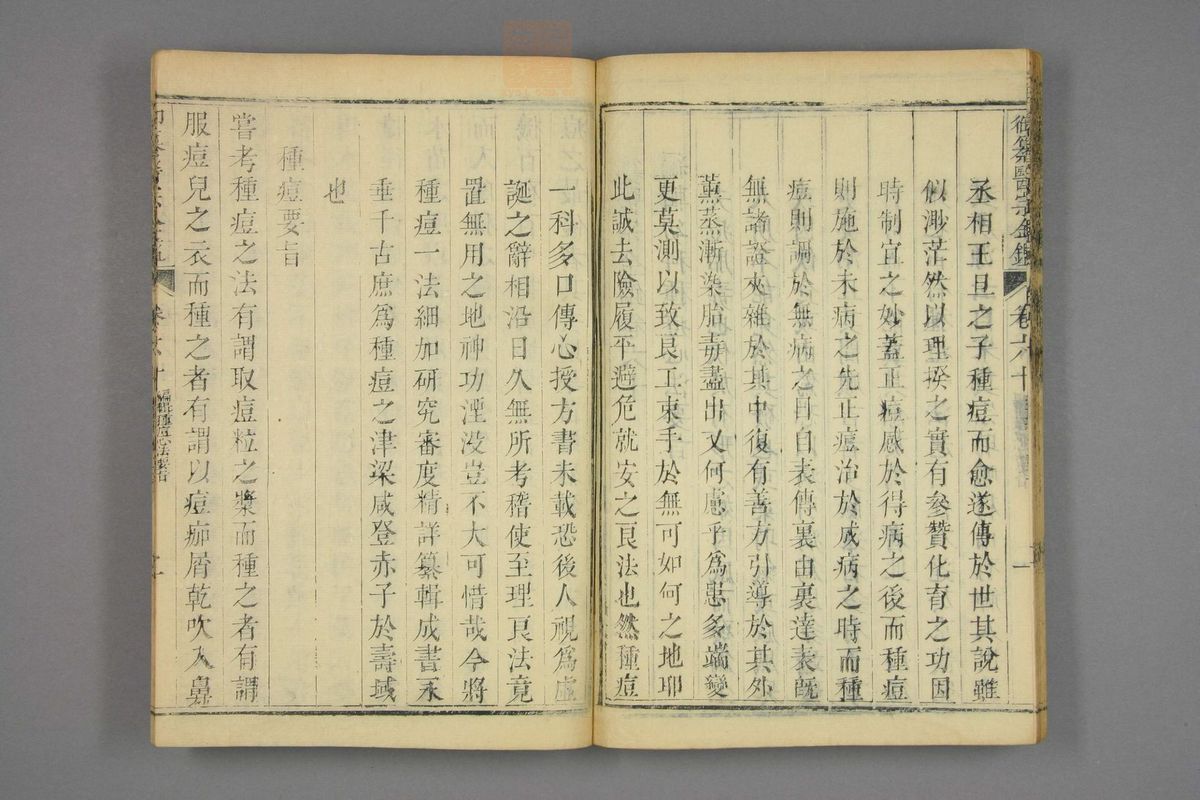 御纂醫宗金鑑
卷六十
一
丞相王旦之子種痘而愈遂傳於世其說雖
似渺茫然以理揆之實有參贊化育之功因
時制宜之妙蓋正痘感於得病之後而種痘
則施於未病之先正痘治於成病之時而種
痘則調於無病之日自表傳裏由裏達表旣
無諸證夾雜於其中復有善方引導於其外
薰蒸漸染胎毒盡出又何慮乎爲患多端變
更莫測以致良工束手於無可如何之地耶
此誠去險履平避危就安之良法也然種痘
一科多口傳心授方書未載恐後人視爲虛
誕之辭相沿日久無所考稽使至理良法竟
置無用之地神功湮没豈不大可惜哉今將
種痘一法細加研究審度精詳纂輯成書永
垂千古庶爲種痘之津梁咸登赤子於壽域
也
種痘要旨
嘗考種痘之法有謂取痘粒之漿而種之者有謂
服痘兒之衣而種之者有謂以痘痂屑乾吹入鼻
卷六十
編輯種痘心法要旨